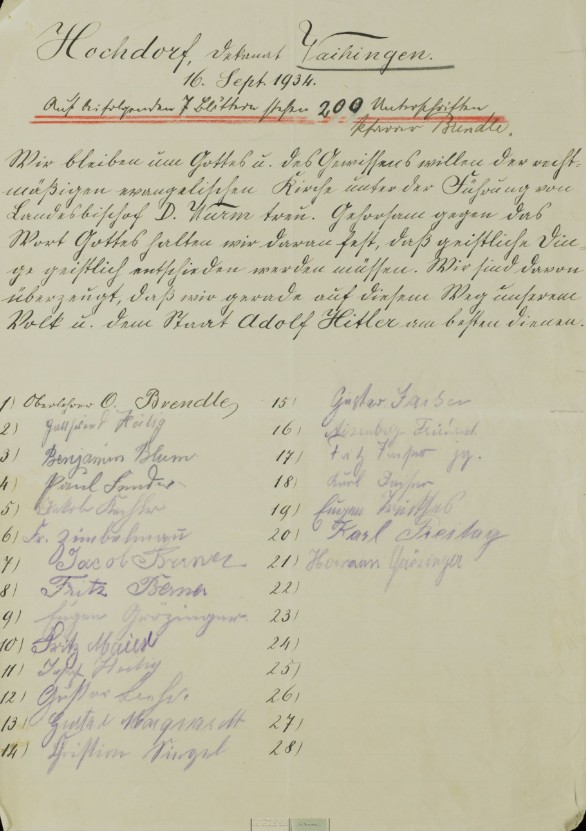 Hochdorf, Dekanat Vaihingen.
16. Sept. 1934.
Auf beifolgenden 7 Blättern stehen 200 Unterschriften
Pfarrer Brendle.
Wir bleiben um Gottes u. des Gewissens willen der recht-
mäßigen evangelischen Kirche unter der Führung von
Landesbischof D. Wurm treu. Gehorsam gegen das
Wort Gottes halten wir daran fest, daß geistliche Din
ge geistlich entschieden werden müssen. Wir sind davon
überzeugt, daß wir gerade auf diesem Weg unserem
Volk u. dem Staat Adolf Hitler am besten dienen.
1) Oberlehrer O. Brendle
2) Gottfried
3) Benjamin Blum
4) Paul
5)
6) Fr. Zimbelmann
7) Jacob
8) Fritz Berner
9) Eugen Grözinger
10) Fritz Maier
11)
12) Gustav
13) Gustav Marquardt
14) Christian Siegel
15) Gustav
16)
17)
18) Karl
19) Eugen
20) Karl Freitag
21) Hermann Grözinger
22)
23)
24)
25)
26)
27)
28)